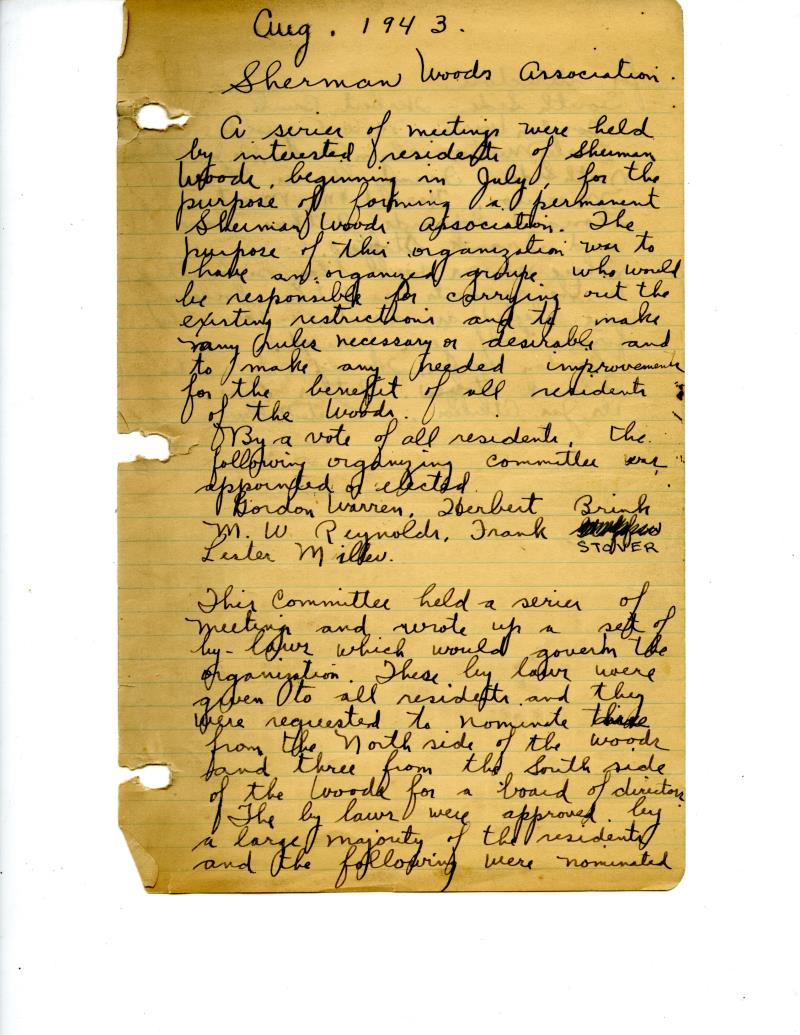 Aug. 1943.
Sherman Woods Association.
A series of meetings were held
by interested residents of Sherman
Woods, beginning in July, for the
purpose of forming a permanent
Sherman Woods Association. The
purpose of this organization was to
have an organized groupe who would
be responsible for carrying out the
existing restrictions and to make
any rules necessary or desirable and
to make any needed improvements
for the benefit of all residents
of the Woods.
By a vote of all residents, the
following organizing committee was
appointed or elected
Gordon Warren, Herbert Brink
M. W. Reynolds, Frank
STOVER
Lester Miller.
This Committee held a series of
meetings and wrote up a set of
by-laws which would govern the
organization. These by laws were
given to all residents and they
were requested to nominate three
from the North side of the woods
and three from the South side
of the Woods for a board of directors
The by laws were approved by
a large majority of the residents
and the following were nominated